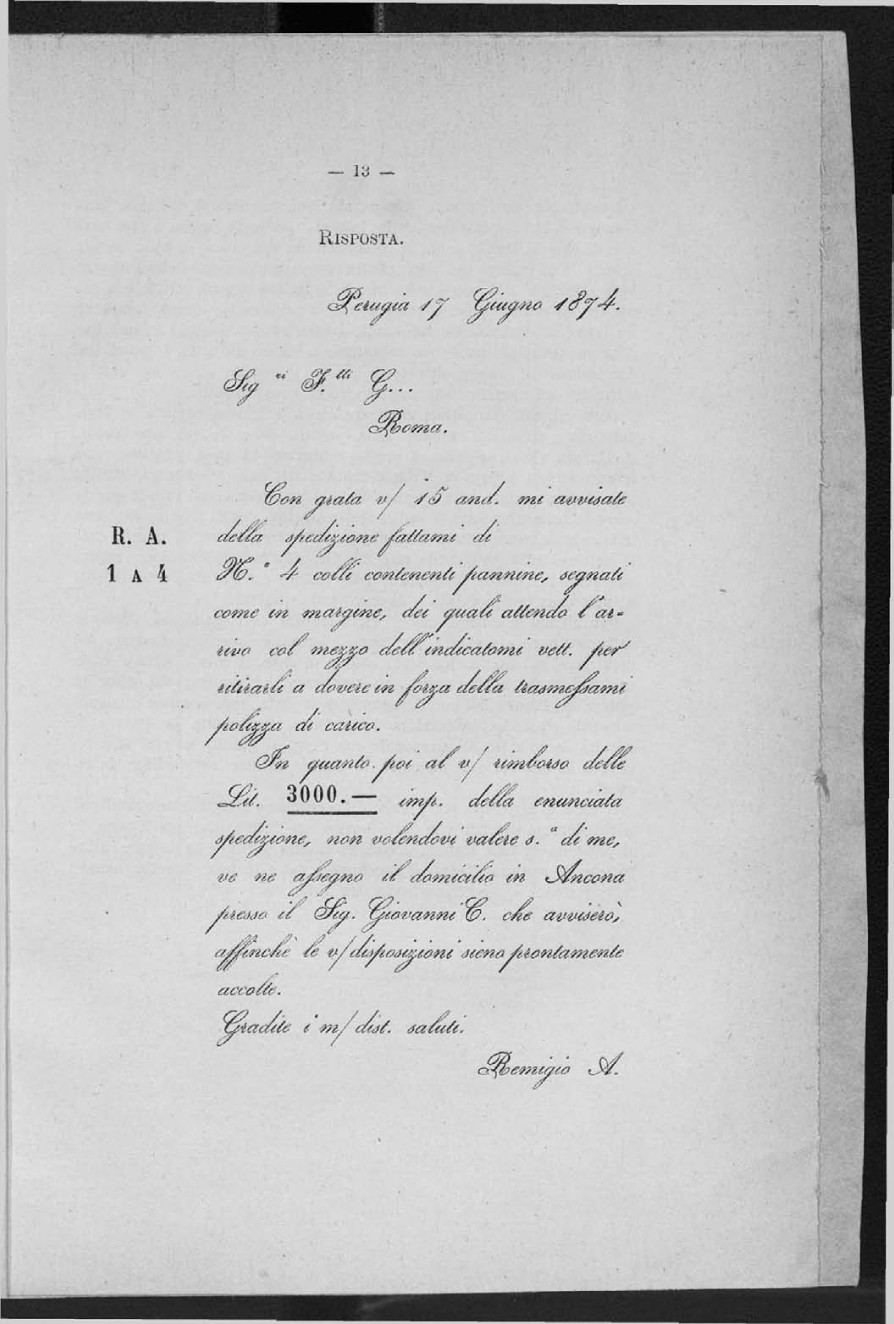 — 13 —
RISPOSTA.
Perugia 17 Giugno 1874.
Sig.ri F.lli G...
Roma.
Con grata v/ 15 and. mi avvisate
R. A. della spedizione fattami di
1 A 4 N.° 4 colli contenenti pannine, segnati
come in margine, dei quali attendo l'ar-
rivo col mezzo dell'indicatomi vett. per
ritirarli a dovere in forza della trasmessami
polizza di carico.
In quanto poi al v/ rimborso delle
Lit. 3000.— imp. della enunciata
spedizione, non volendovi valere s.a di me,
ve ne assegno il domicilio in Ancona
presso il Sig. Giovanni C. che avviserò,
affinchè le v/ disposizioni sieno prontamente
accolte.
Gradite i m/ dist. saluti.
Remigio A.